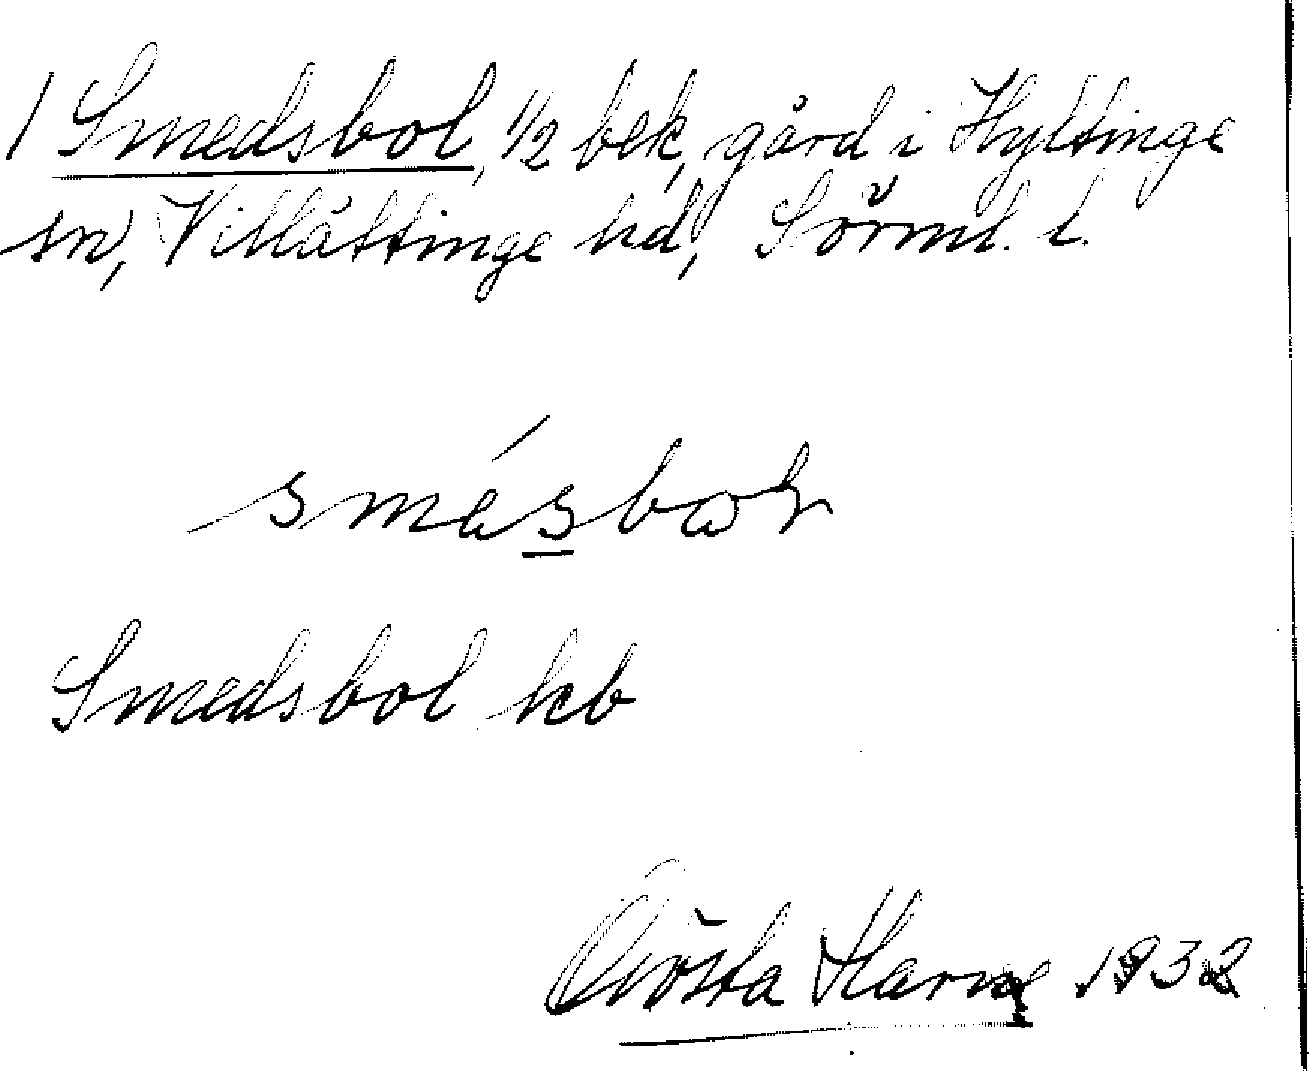 1 Smedsbol, 1/2 bek, gård i Hyltinge
sn, Villåttinge hd, Sörml. l.
smésboɫ
Smedsbol kb
Gösta Harne 1932